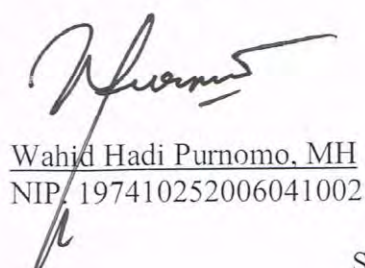 Wahid Hadi Purnomo, MH
NIP. 197410252006041002
S